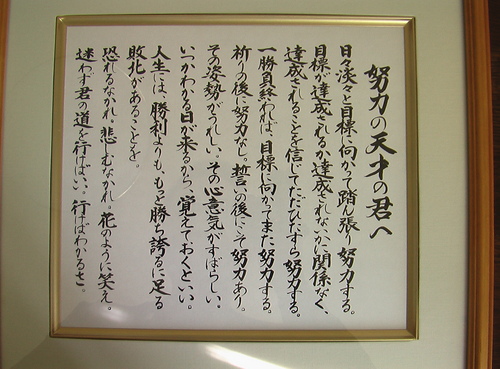 努力の天才の君へ
日々淡々と目標に向かって踏ん張り努力する。
目標が達成されるか達成されないかに関係なく、
達成されることを信じてただひたすら努力する。
一勝負終われば、目標に向かってまた努力する。
祈りの後に努力なし。誓いの後にこそ努力あり。
その姿勢がうれしい。その心意気がすばらしい。
いつかわかる日が来るから、覚えておくといい。
人生には、勝利よりも、もっと勝ち誇るに足る
敗北があることを。
恐れるなかれ。悲しむなかれ。花のように笑え。
迷わず君の道を行けばいい。行けばわかるさ。